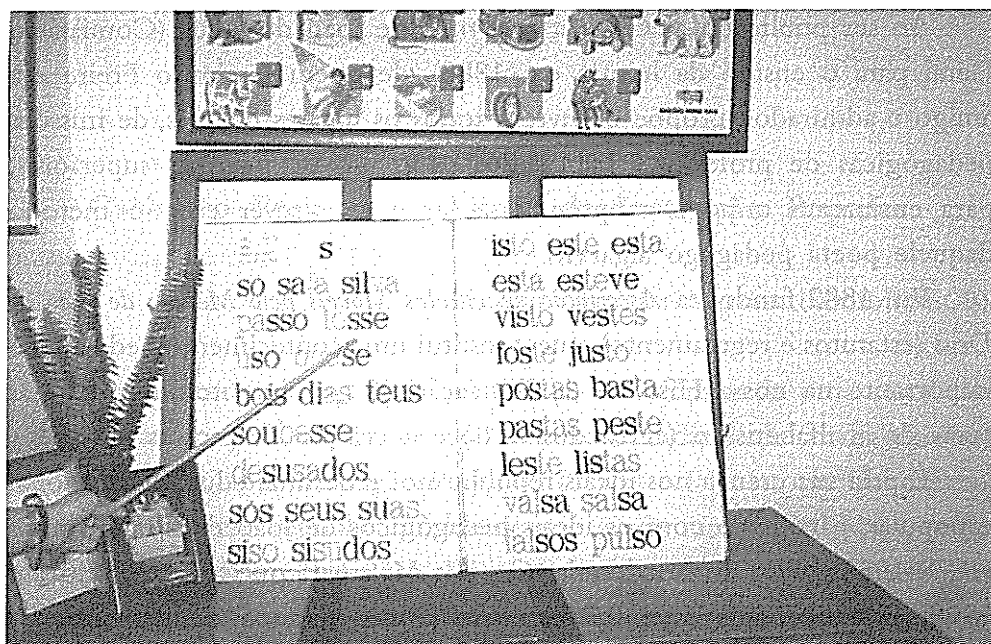 s
so sala silva
passo
uso
bois dias teus
soubesse
desusados
sós seus suas
siso sisudos
isto este esta
esta esteve
visto vestes
foste justo
postas basta
pastas peste
leste listas
valsa salsa
falsos pulso